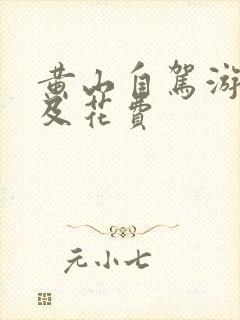 黄山自驾游
及花费
元小七